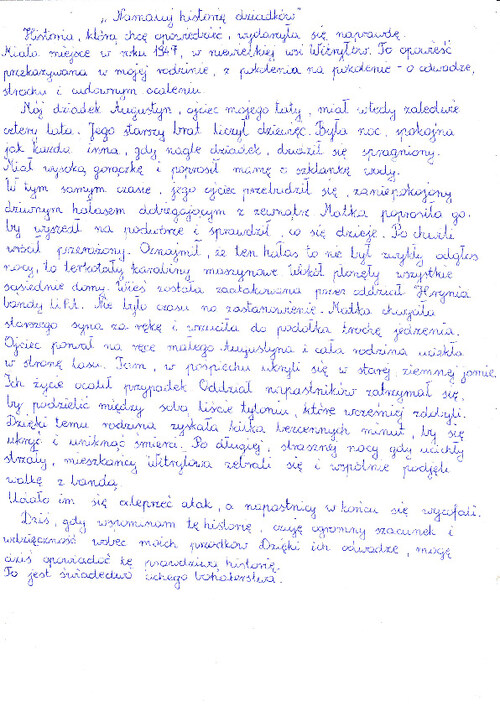 „Namaluj historię dziadków”
Historia, którą chcę opowiedzieć, wydarzyła się naprawdę.
Miała miejsce w roku 1947, w niewielkiej wsi Wetrylów. To opowieść
przekazywana w mojej rodzinie, z pokolenia na pokolenie - o odwadze,
strachu i cudownym ocaleniu.
Mój dziadek Augustyn, ojciec mojego taty, miał wtedy zaledwie
cztery lata. Jego starszy brat liczył dziewięć. Była noc, spokojna
jak każda inna, gdy nagle dziadek, obudził się spragniony.
Miał wysoką gorączkę i poprosił mamę o szklankę wody.
W tym samym czasie, jego ojciec przebudził się, zaniepokojony
dziwnym hałasem dobiegającym z zewnątrz. Matka poprosiła go
by wyszedł na podwórze i sprawdził, co się dzieje. Po chwili
wrócił przerażony. Oznajmił, że ten hałas to nie był zwykły odgłos
nocy, to terkotały karabiny maszynowe. Wokół płonęły wszystkie
sąsiednie domy. Wieś została zaatakowana przez oddział Hrynia
bandy U.P.A. Nie było czasu na zastanowienie. Matka chwyciła
starszego syna za rękę i wrzuciła do podołka trochę jedzenia.
Ojciec porwał na ręce małego Augustyna i cała rodzina uciekła
w stronę lasu. Tam, w pośpiechu ukryli się w starej, ziemnej jamie.
Ich życie ocalił przypadek. Oddział napastników zatrzymał się,
by podzielić między sobą liście tytoniu, które wcześniej zdobyli.
Dzięki temu rodzina zyskała kilka bezcennych minut, by się
ukryć i uniknąć śmierci. Po długiej, strasznej nocy gdy ucichły
strzały, mieszkańcy Wetrylowa zebrali się i wspólnie podjęli
walkę z bandą.
Udało im się odeprzeć atak, a napastnicy w końcu się wycofali.
Dziś, gdy wspominam tę historię, czuję ogromny szacunek i
wdzięczność wobec moich przodków. Dzięki ich odwadze, mogę
dziś opowiadać tę prawdziwą historię.
To jest świadectwo cichego bohaterstwa.